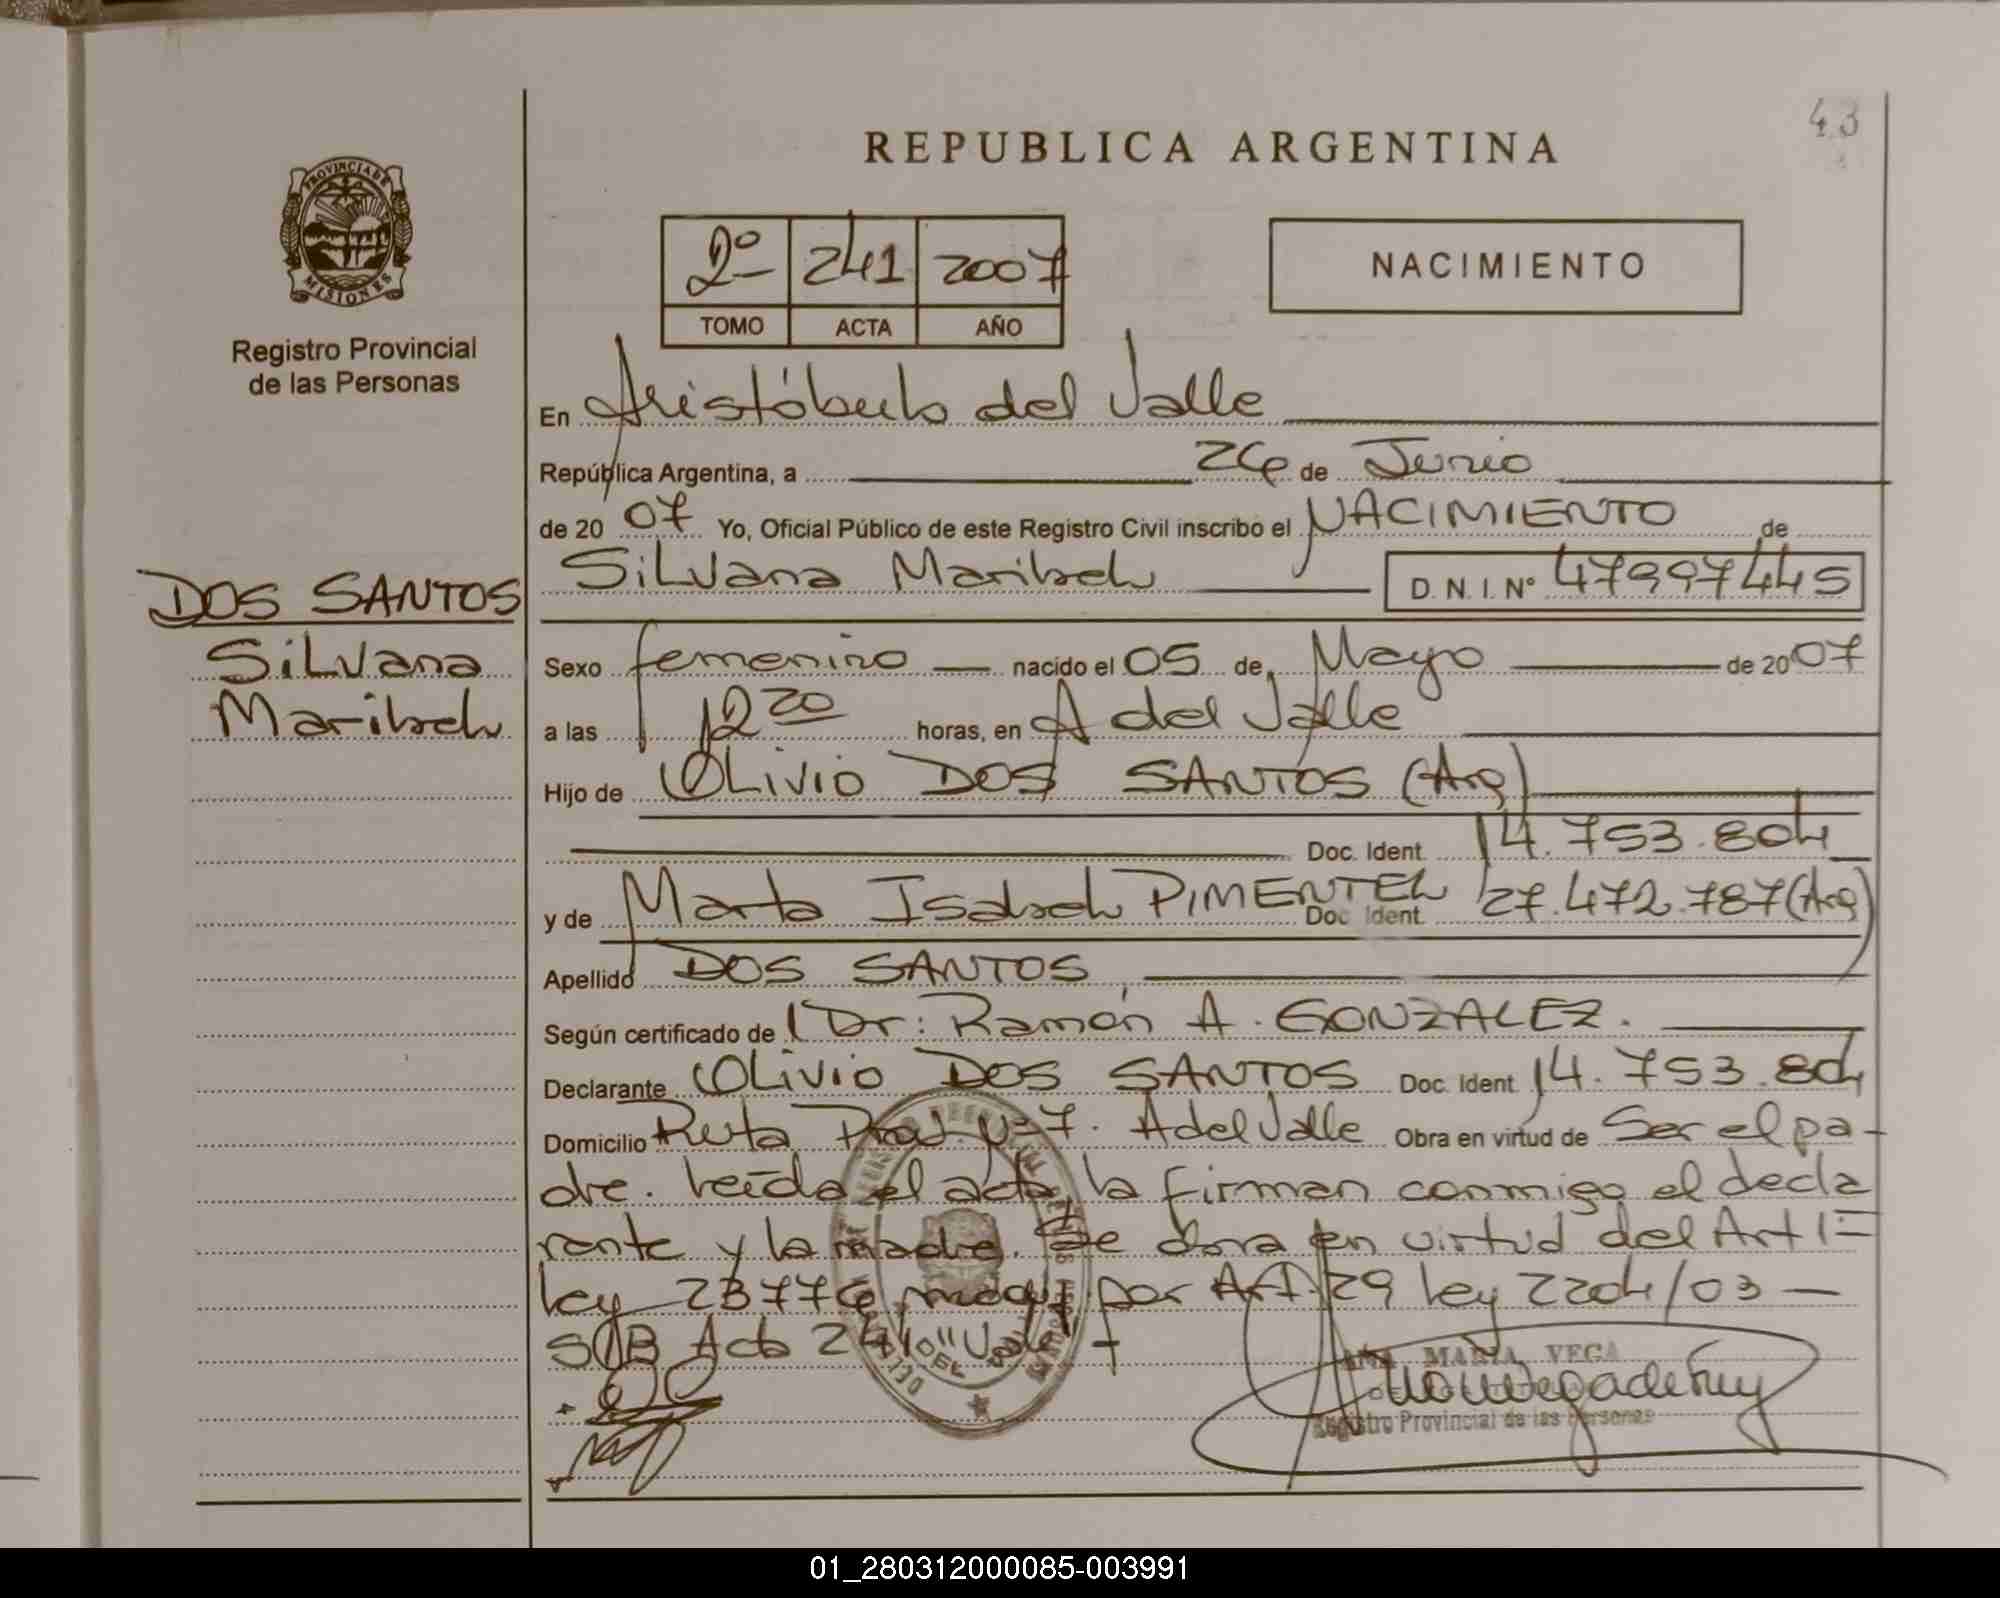 43
REPUBLICA ARGENTINA
PROVINCIA DE
MISIONES
Registro Provincial
de las Personas
2º 241 2007
TOMO ACTA AÑO
NACIMIENTO
En Aristóbulo del Valle
República Argentina, a 26 de Junio
de 20 07 Yo, Oficial Público de este Registro Civil inscribo el NACIMIENTO de
DOS SANTOS
Silvana
Maribel
Silvana Maribel D. N. I. Nº 47997445
Sexo femenino nacido el 05 de Mayo de 20 07
a las 12 20 horas, en A del Valle
Hijo de Olivio DOS SANTOS (Arg)
Doc. Ident. 14.753.804
y de Marta Isabel PIMENTEL Doc. Ident. 27.472.787 (Arg)
Apellido DOS SANTOS
Según certificado de Dr: Ramón A. GONZALEZ.
Declarante Olivio DOS SANTOS Doc. Ident. 14.753.804
Domicilio Ruta Prov. Nº 7. A del Valle Obra en virtud de Ser el pa-
dre. Leída el acta, la firman conmigo el decla
rante y la madre. Se obra en virtud del Art 1=
Ley 23776 modif por Art. 29 Ley 2204/03 —
S/B Acta 241 "Vale"
ANA MARIA VEGA
Registro Provincial de las Personas
01_280312000085-003991